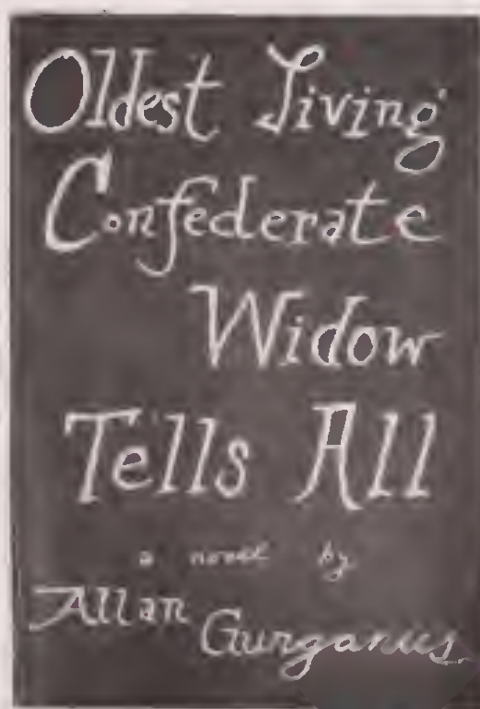 Oldest Living
Confederate
Widow
Tells All
a novel by
Allan
Gurganus